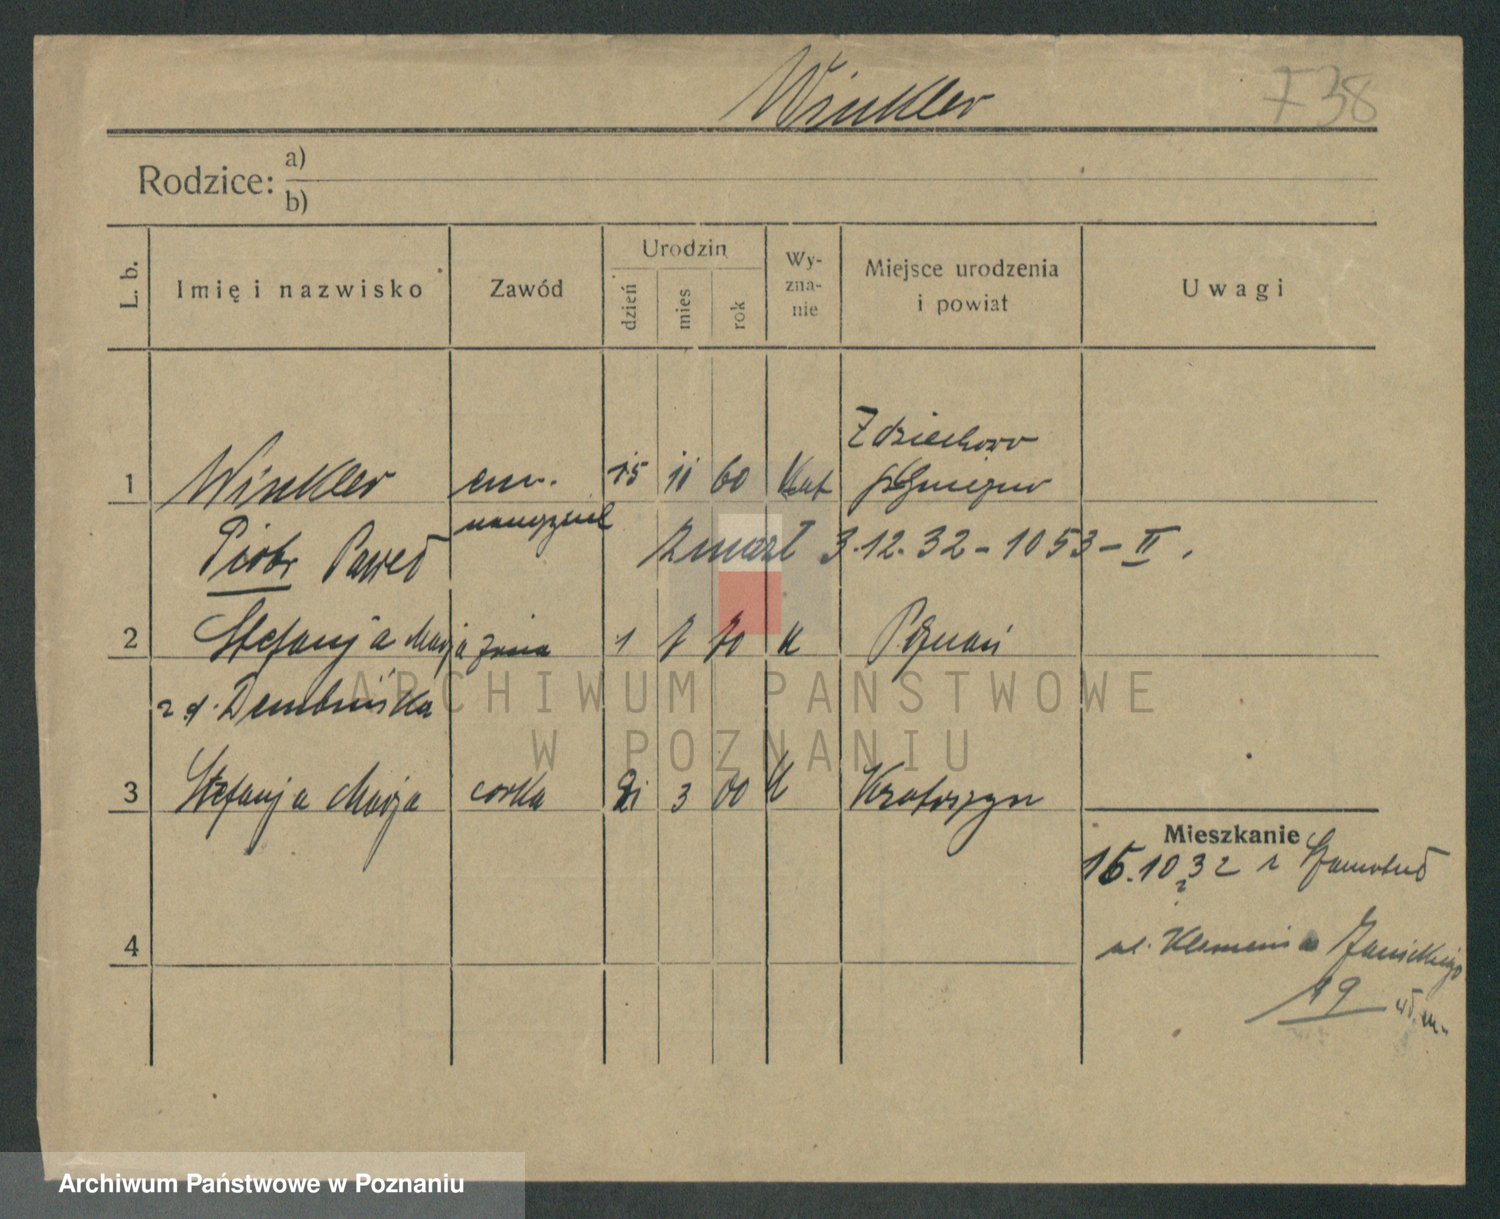 Winkler
738
Rodzice: a)
b)
L. b.
Imię i nazwisko
Zawód
Urodzin
dzień
mies
rok
Wy-
zna-
nie
Miejsce urodzenia
i powiat
Uwagi
Zdziechowo
1 Winkler em. 15 11 60 Kat Gniezno
nauczyciel
Piotr Paweł zmarł 3.12.32 - 1053 - II.
2 Stefanja Marja żona 1 7 70 K Poznań
z d. Dembińska
3 Stefanja Marja córka 21 3 00 K Krotoszyn
Mieszkanie
15.10.32 z Szamotuł
4
ul. Klemensa Janickiego
19 wł. m.
ARCHIWUM PAŃSTWOWE
W POZNANIU
Archiwum Państwowe w Poznaniu